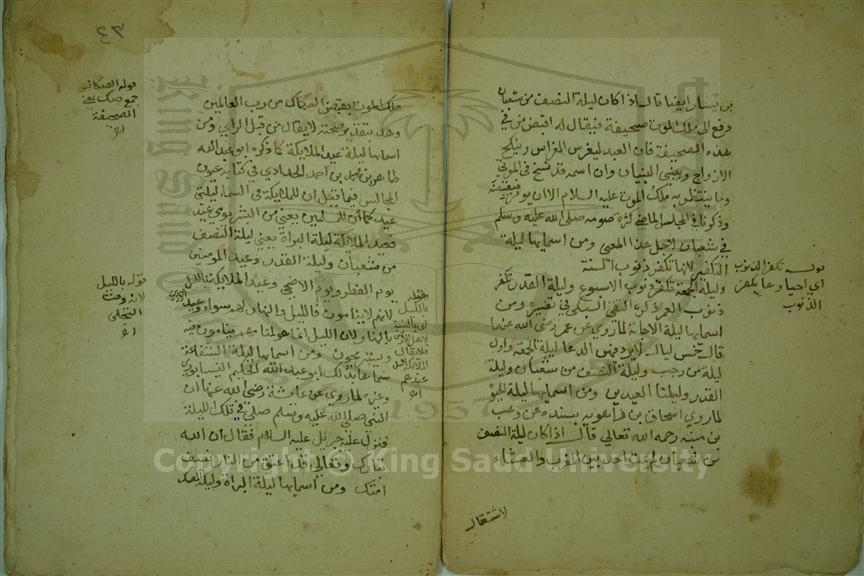 بن يسار ايضا قال اذا كان ليلة النصف من شعبان
دفع الى ملك الموت صحيفة فيقال له اقبض من في
هذه الصحيفة فان العبد ليغرس الغراس وينكح
الازواج ويبني البنيان وان اسمه قد نسخ في الموتى
وما ينتظر به ملك الموت عليه السلام الا ان يومر فيقبضه
وذكرنا في المجلس الماضي كثرة صومه صلى الله عليه وسلم
في شعبان لاجل هذا المعنى ومن اسمايها ليلة
التكفير لانها تكفر ذنوب السنة
وليلة الجمعة تكفر ذنوب الاسبوع وليلة القدر تكفر
ذنوب العمر ذكره التقي السبكي في تفسيره ومن
اسمايها ليلة الاجابة لما روي عن عمر رضي الله عنهما
قال خمس ليال لا يرد فيهن الدعا ليلة الجمعة واول
ليلة من رجب وليلة النصف من شعبان وليلة
القدر وليلتا العيدين ومن اسمايها ليلة
لما روي اسحاق بن راهويه بسنده عن وهب
بن منبه رحمه الله تعالى قال اذا كان ليلة النصف
من شعبان لم يمت احد بين المغرب والعشاء
لاشتغال
قوله تكفر الذنوب
اي احياوها يكفر
الذنوب
٤٣
ملك الموت بقبض الصكاك من رب العالمين
ومن
اسمايها ليلة عيد الملايكة كما ذكره ابو عبد الله
طاهر بن محمد بن احمد الحدادي في كتابه عيون
المجالس فيما فقال ان للملايكة في السما ليلتي
عيد كما ان للمسلمين يعني من البشر يومي عيد
فعيد الملايكة ليلة البراة يعني ليلة النصف
من شعبان وليلة القدر وعيد المومنين
يوم الفطر ويوم الاضحى وعيد الملايكة بالليل
لانهم لا ينامون فالليل والنهار لهم سواء وعيد
بالنهار لان الليل انما هو لنا منهم ينامون فيه
ويستريحون ومن اسمايها ليلة الشفاعة
سماها بذلك ابو عبد الله الحكيم النيسابوري
وغيره لما روي عن عايشة رضي الله عنها ان
النبي صلى الله عليه وسلم صلى في تلك الليلة
فنزل عليه جبريل عليه السلام فقال ان الله
تبارك وتعالى قد اعتق من النار نصف
امتك ومن اسمايها ليلة البراة وليلة
قوله الصكاك
جمع صك بمعنى
الصحيفة
اه
قوله بالليل
لان وقت
التجلي
اه
Copyright © King Saud University
1957